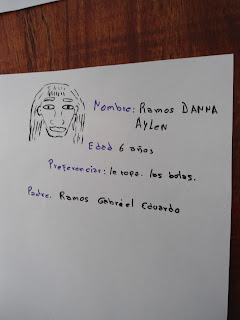 Nombre: Ramos DANNA
AYLEN
Edad 6 años
Preferencias: la ropa. las botas.
Padre. Ramos Gabriel Eduardo